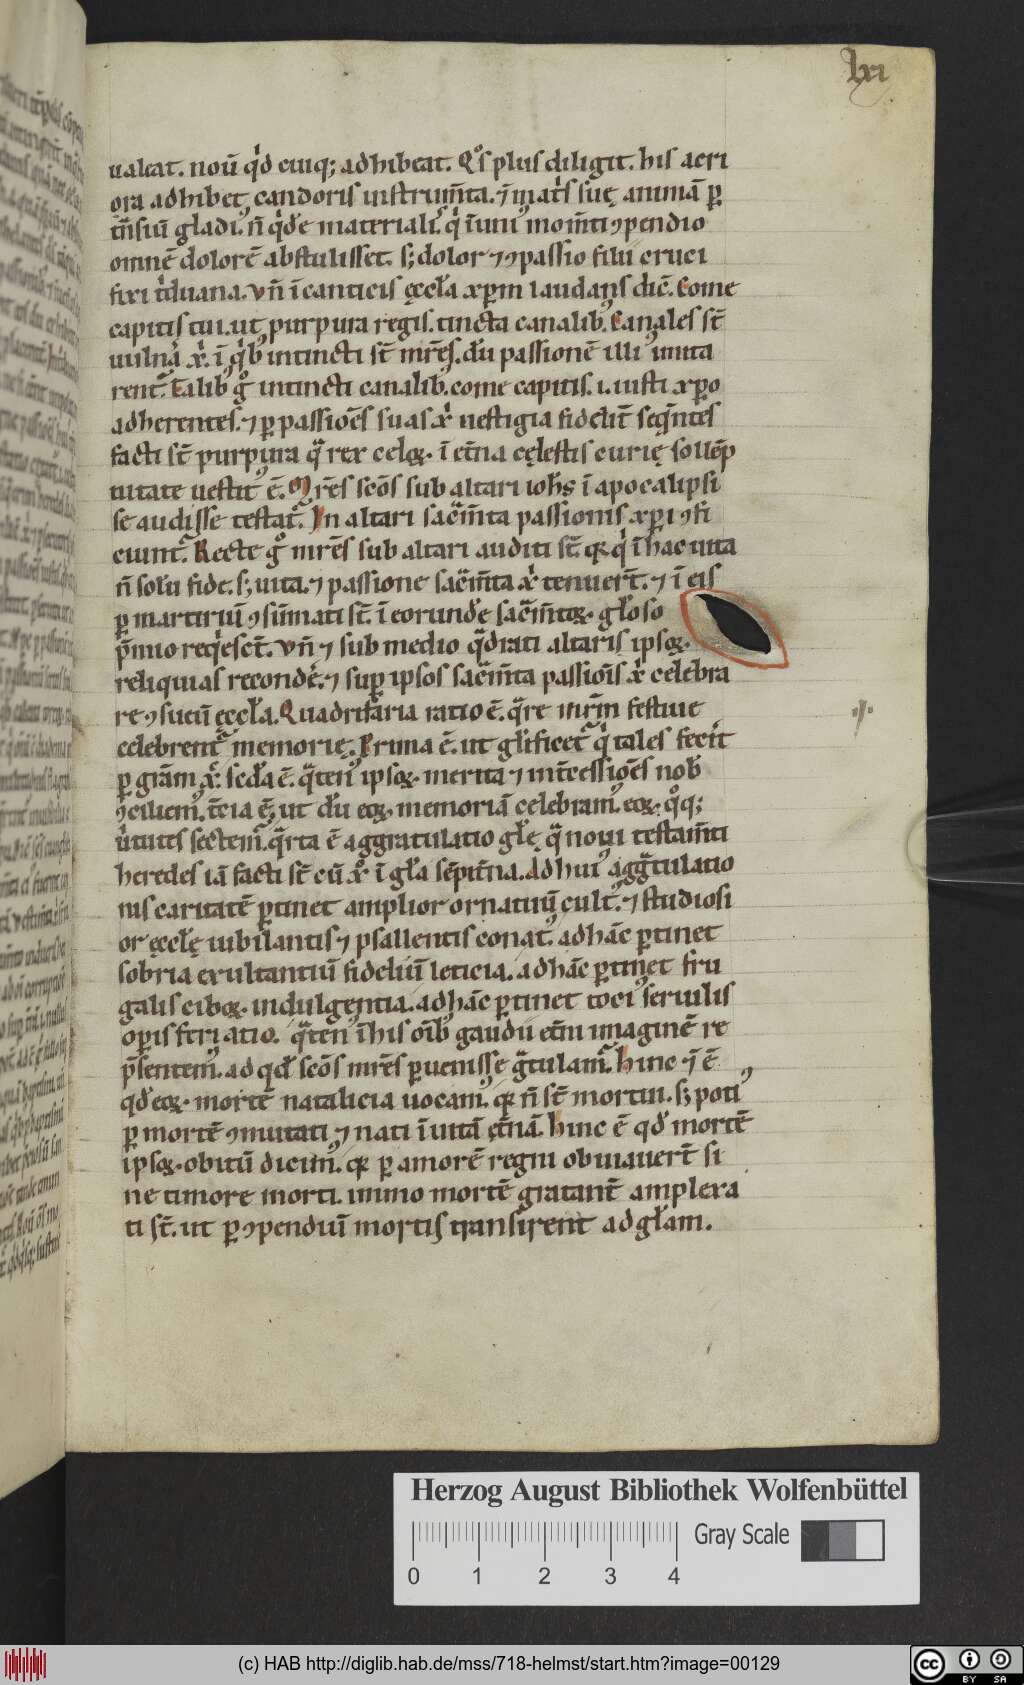 lxi
ualeat. noū qͥd cuiq; adhibeat. Qͦs plus diligit. his acri
ora adhibet candoris instrum̄ta. ⁊ ī mat̓s suę animā ꝑ
t̄nsiū gladiꝰ. n̄ qͥdē materialiſ. qͥ ī uniꝰ mom̄ti ꝯpendio
omnē dolorē abstulisset. s; dolor ⁊ ꝯpassio filii cruci
fixi tͥduana. Vn̄ ī canticis ęccła xp̄m laudans dic̄. Come
capitis tui. ut purpura regis. tincta canalib᷒. Canales st̄
uulnͣa xͥ. ī qͥb᷒ intincti st̄ mr̄es. dū passionē illiꝰ imita
rent᷑. Talib᷒ gͦ intincti canalib᷒. come capitis. i. iusti xp̄o
adherentes. ⁊ ꝑ passiōes suas xͥ uestigia fidelit̄ seqn̄tes
facti st̄ purpura qͣ rex celoꝝ. ī et̄na cęlestis curię sollēp
nitate uestitꝰ ē. Mr̄es scōs sub altari ioh̄s ī apocalipsi
se audisse testat᷑. In altari sacͣm̄ta passionis xp̄i ꝯfi
ciunt᷑. Recte gͦ mr̄es sub altari auditi st̄. qꝛ qͥ ī hac uita
n̄ solū fide. s; uita. ⁊ passione sacͣm̄ta xͥ tenuer̄t. ⁊ ī eis
ꝑ martiriū ꝯsūmati st̄. ī eorundē sacͣm̄toꝝ. głoso
p̄mio reqͥesct̄. Vn̄ ⁊ sub medio qͣdrati altaris ipsoꝝ.
reliquias recondē. ⁊ suꝑ ipsos sacͣm̄ta passiōis xͥ celebra
re ꝯsueū ęccła. Quadrifaria ratio ē. qͣre mr̄m festiue
celebrent᷑ memorię. Prima ē. ut gl̄ificet᷑ qͥ tales fecit
ꝑ grām xͥ. sedͣa ē. qͣtenꝰ ipsoꝝ. merita ⁊ int̄cessiōes nob̄
ꝯciliemꝰ. t̄cia ē, ut dū eoꝝ. memoriā celebramꝰ. eoꝝ. qͦq;
ūtutes sectemᷣ. qͣrta ē aggratulatio głę qͣ noui testam̄ti
heredes iā facti st̄ cū xͦ ī gła sēpit̄na. Ad huiꝰ aggͣtulatio
nis caritatē ꝑtinet amplior ornatuū cultꝰ. ⁊ studiosi
or ęccłę iubilantis ⁊ psallentis conatꝰ. ad hāc ꝑtinet
sobria exultantiū fideliū leticia. ad hāc ꝑtinet fru
galis ciboꝝ. indulgentia. ad hāc ꝑtinet tociꝰ seruilis
operis feriatio. qͣtenꝰ ī his oīb᷒ gaudii et̄ni imaginē re
p̄sentemꝰ. ad qđ scōs mr̄es ꝑuenisse gͣtulamᷣ. Hinc ⁊ ī ē
qđ eoꝝ. mortē natalicia uocamꝰ. qꝛ n̄ st̄ mortui. s; potiꝰ
ꝑ mortē ꝯmutati ⁊ nati ī uitā et̄nā. hinc ē qđ mortē
ipsoꝝ. obitū dicimꝰ. qꝛ ꝑ amorē regni obuiauer̄t si
ne timore morti. immo mortē gratanť amplexa
ti st̄. ut ꝑ ꝯpendiū mortis transirent ad głam.
Herzog August Bibliothek Wolfenbüttel
0 1 2 3 4
Gray Scale
(c) HAB http://diglib.hab.de/mss/718-helmst/start.htm?image=00129
cc BY SA